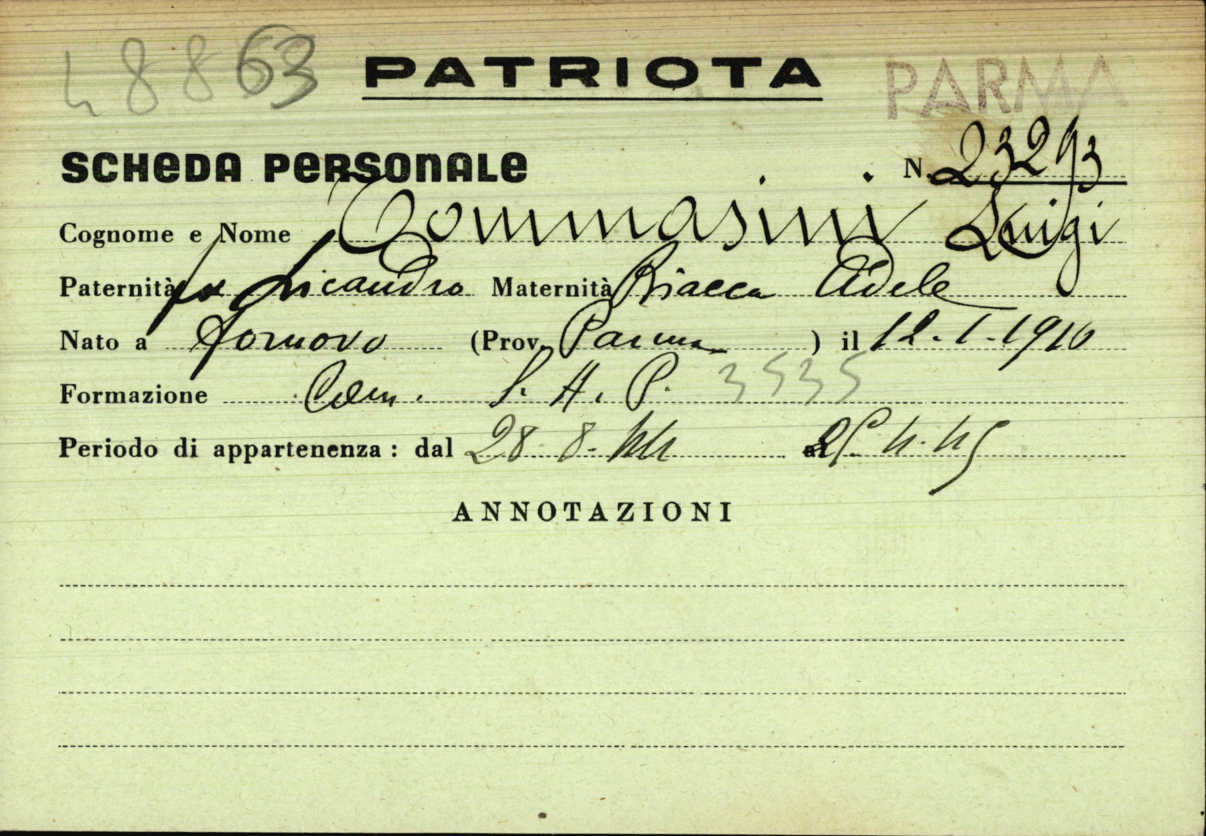 48863 PATRIOTA PARMA
SCHEDA PERSONALE N. 23293
Cognome e Nome Tommasini Luigi
Paternità fu Licandro Maternità Riacca Adele
Nato a Fornovo (Prov. Parma ) il 12.1.1910
Formazione Com. S. A. P. 3535
Periodo di appartenenza : dal 28.8.44 al 25.4.45
ANNOTAZIONI